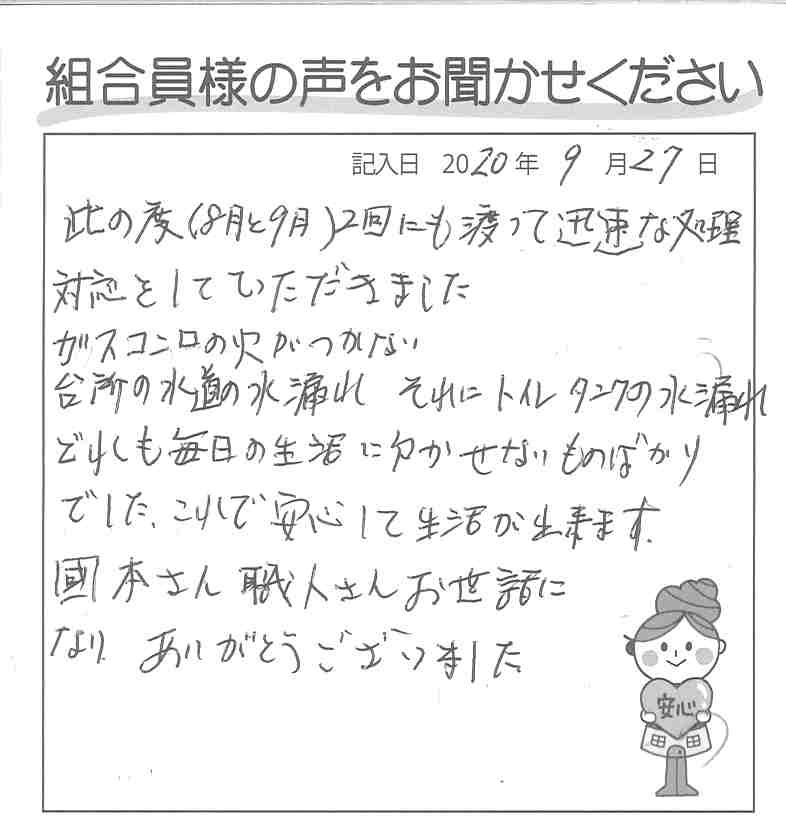 組合員様の声をお聞かせください
記入日 2020年 9月27日
此の度(8月と9月)2回にも渡って迅速な処理
対応をしていただきました
ガスコンロの火がつかない
台所の水道の水漏れ それにトイレタンクの水漏れ
どれも毎日の生活に欠かせないものばかり
でした、これで安心して生活が出来ます。
國本さん 職人さんお世話に
なり ありがとうございました
安心